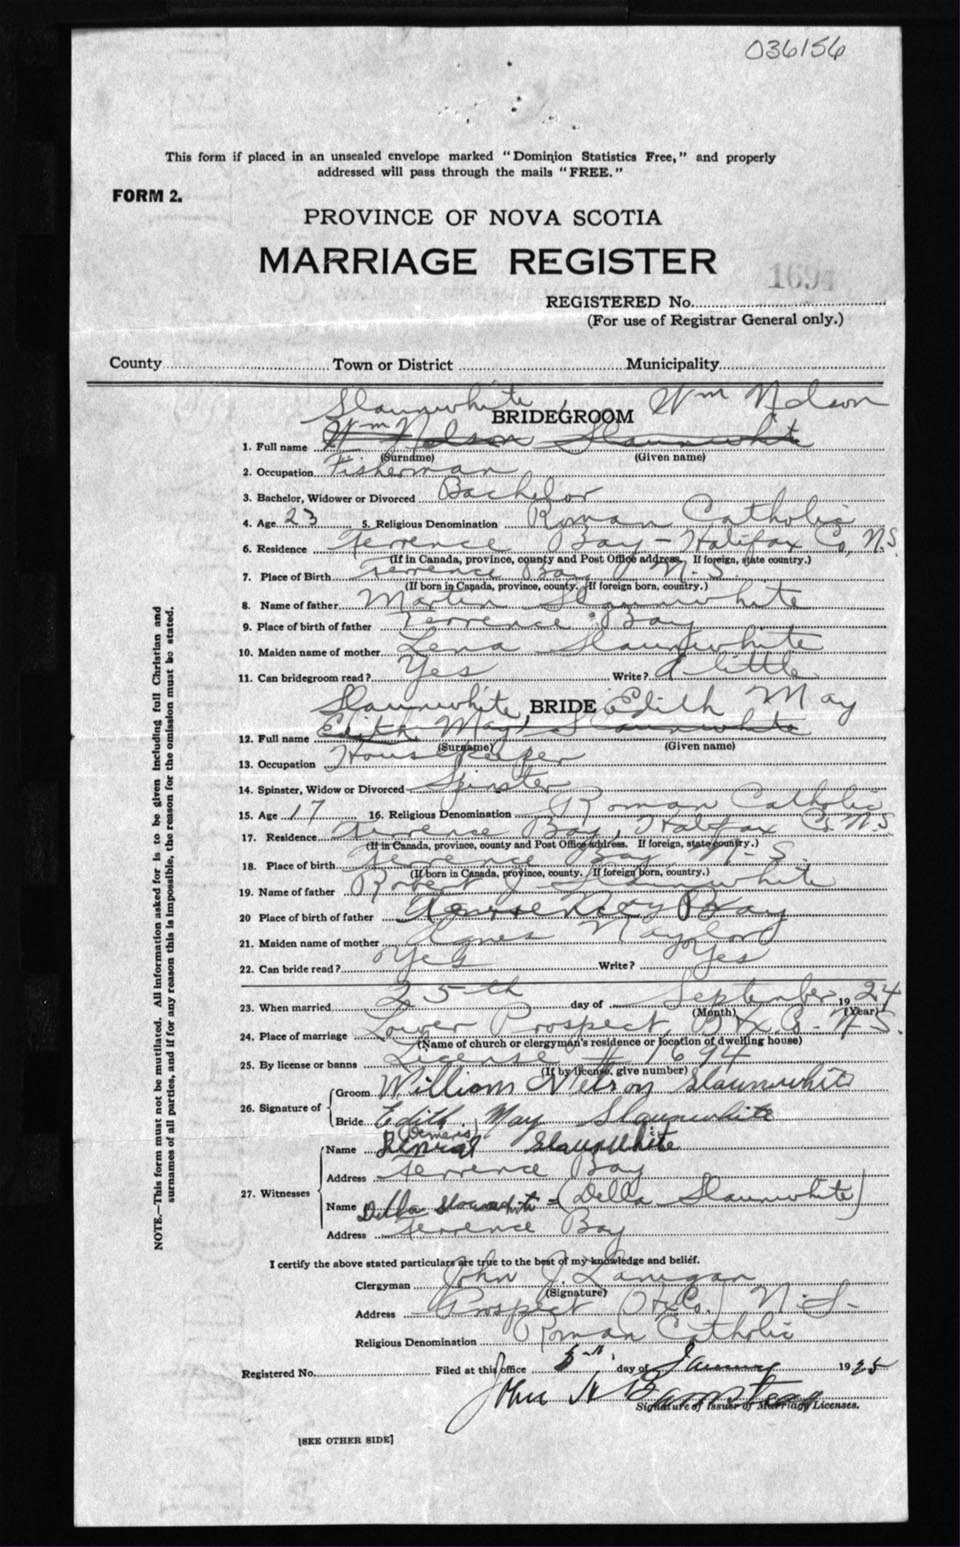 036156
This form if placed in an unsealed envelope marked "Dominion Statistics Free," and properly
addressed will pass through the mails "FREE."
FORM 2.
PROVINCE OF NOVA SCOTIA
MARRIAGE REGISTER
1694
REGISTERED No.
(For use of Registrar General only.)
County Town or District Municipality
Slaunwhite BRIDEGROOM Wm Nelson
1. Full name Wm Nelson Slaunwhite
(Surname) (Given name)
2. Occupation Fisherman
3. Bachelor, Widower or Divorced Bachelor
4. Age 23 5. Religious Denomination Roman Catholic
6. Residence Terrence Bay - Halifax Co, N.S.
(If in Canada, province, county and Post Office address. If foreign, state country.)
7. Place of Birth Terrence Bay N.S.
(If born in Canada, province, county. If foreign born, country.)
8. Name of father Martin Slaunwhite
9. Place of birth of father Terrence Bay
10. Maiden name of mother Lena Slaunwhite
11. Can bridegroom read? Yes Write? A little
Slaunwhite, BRIDE Edith May
12. Full name Edith May Slaunwhite
(Surname) (Given name)
13. Occupation Housekeeper
14. Spinster, Widow or Divorced Spinster
15. Age 17 16. Religious Denomination Roman Catholic
17. Residence Terrence Bay, Halifax Co. N.S.
(If in Canada, province, county and Post Office address. If foreign, state country.)
18. Place of birth Terrence Bay N-S.
(If born in Canada, province, county. If foreign born, country.)
19. Name of father Robert J Slaunwhite
20 Place of birth of father Bay
21. Maiden name of mother Agnes Naylor
22. Can bride read? Yes Write? Yes
23. When married 25th day of September 1924
(Month) (Year)
24. Place of marriage Lower Prospect, Hx. Co. - N.S.
(Name of church or clergyman's residence or location of dwelling house)
25. By license or banns License # 1694
(If by license, give number)
26. Signature of Groom William Nelson Slaunwhite
Bride Edith May Slaunwhite
27. Witnesses Name Slaunwhite
Address Terrence Bay
Name Della Slaunwhite - (Della Slaunwhite)
Address Terrence Bay
I certify the above stated particulars are true to the best of my knowledge and belief.
Clergyman John J. Lanigan
(Signature)
Address Prospect Hx Co. N.S.
Religious Denomination Roman Catholic
Registered No. Filed at this office 5th day of January 1925
John
Signature of Issuer of Marriage Licenses.
[SEE OTHER SIDE]
NOTE.—This form must not be mutilated. All information asked for is to be given including full Christian and
surnames of all parties, and if for any reason this is impossible, the reason for the omission must be stated.